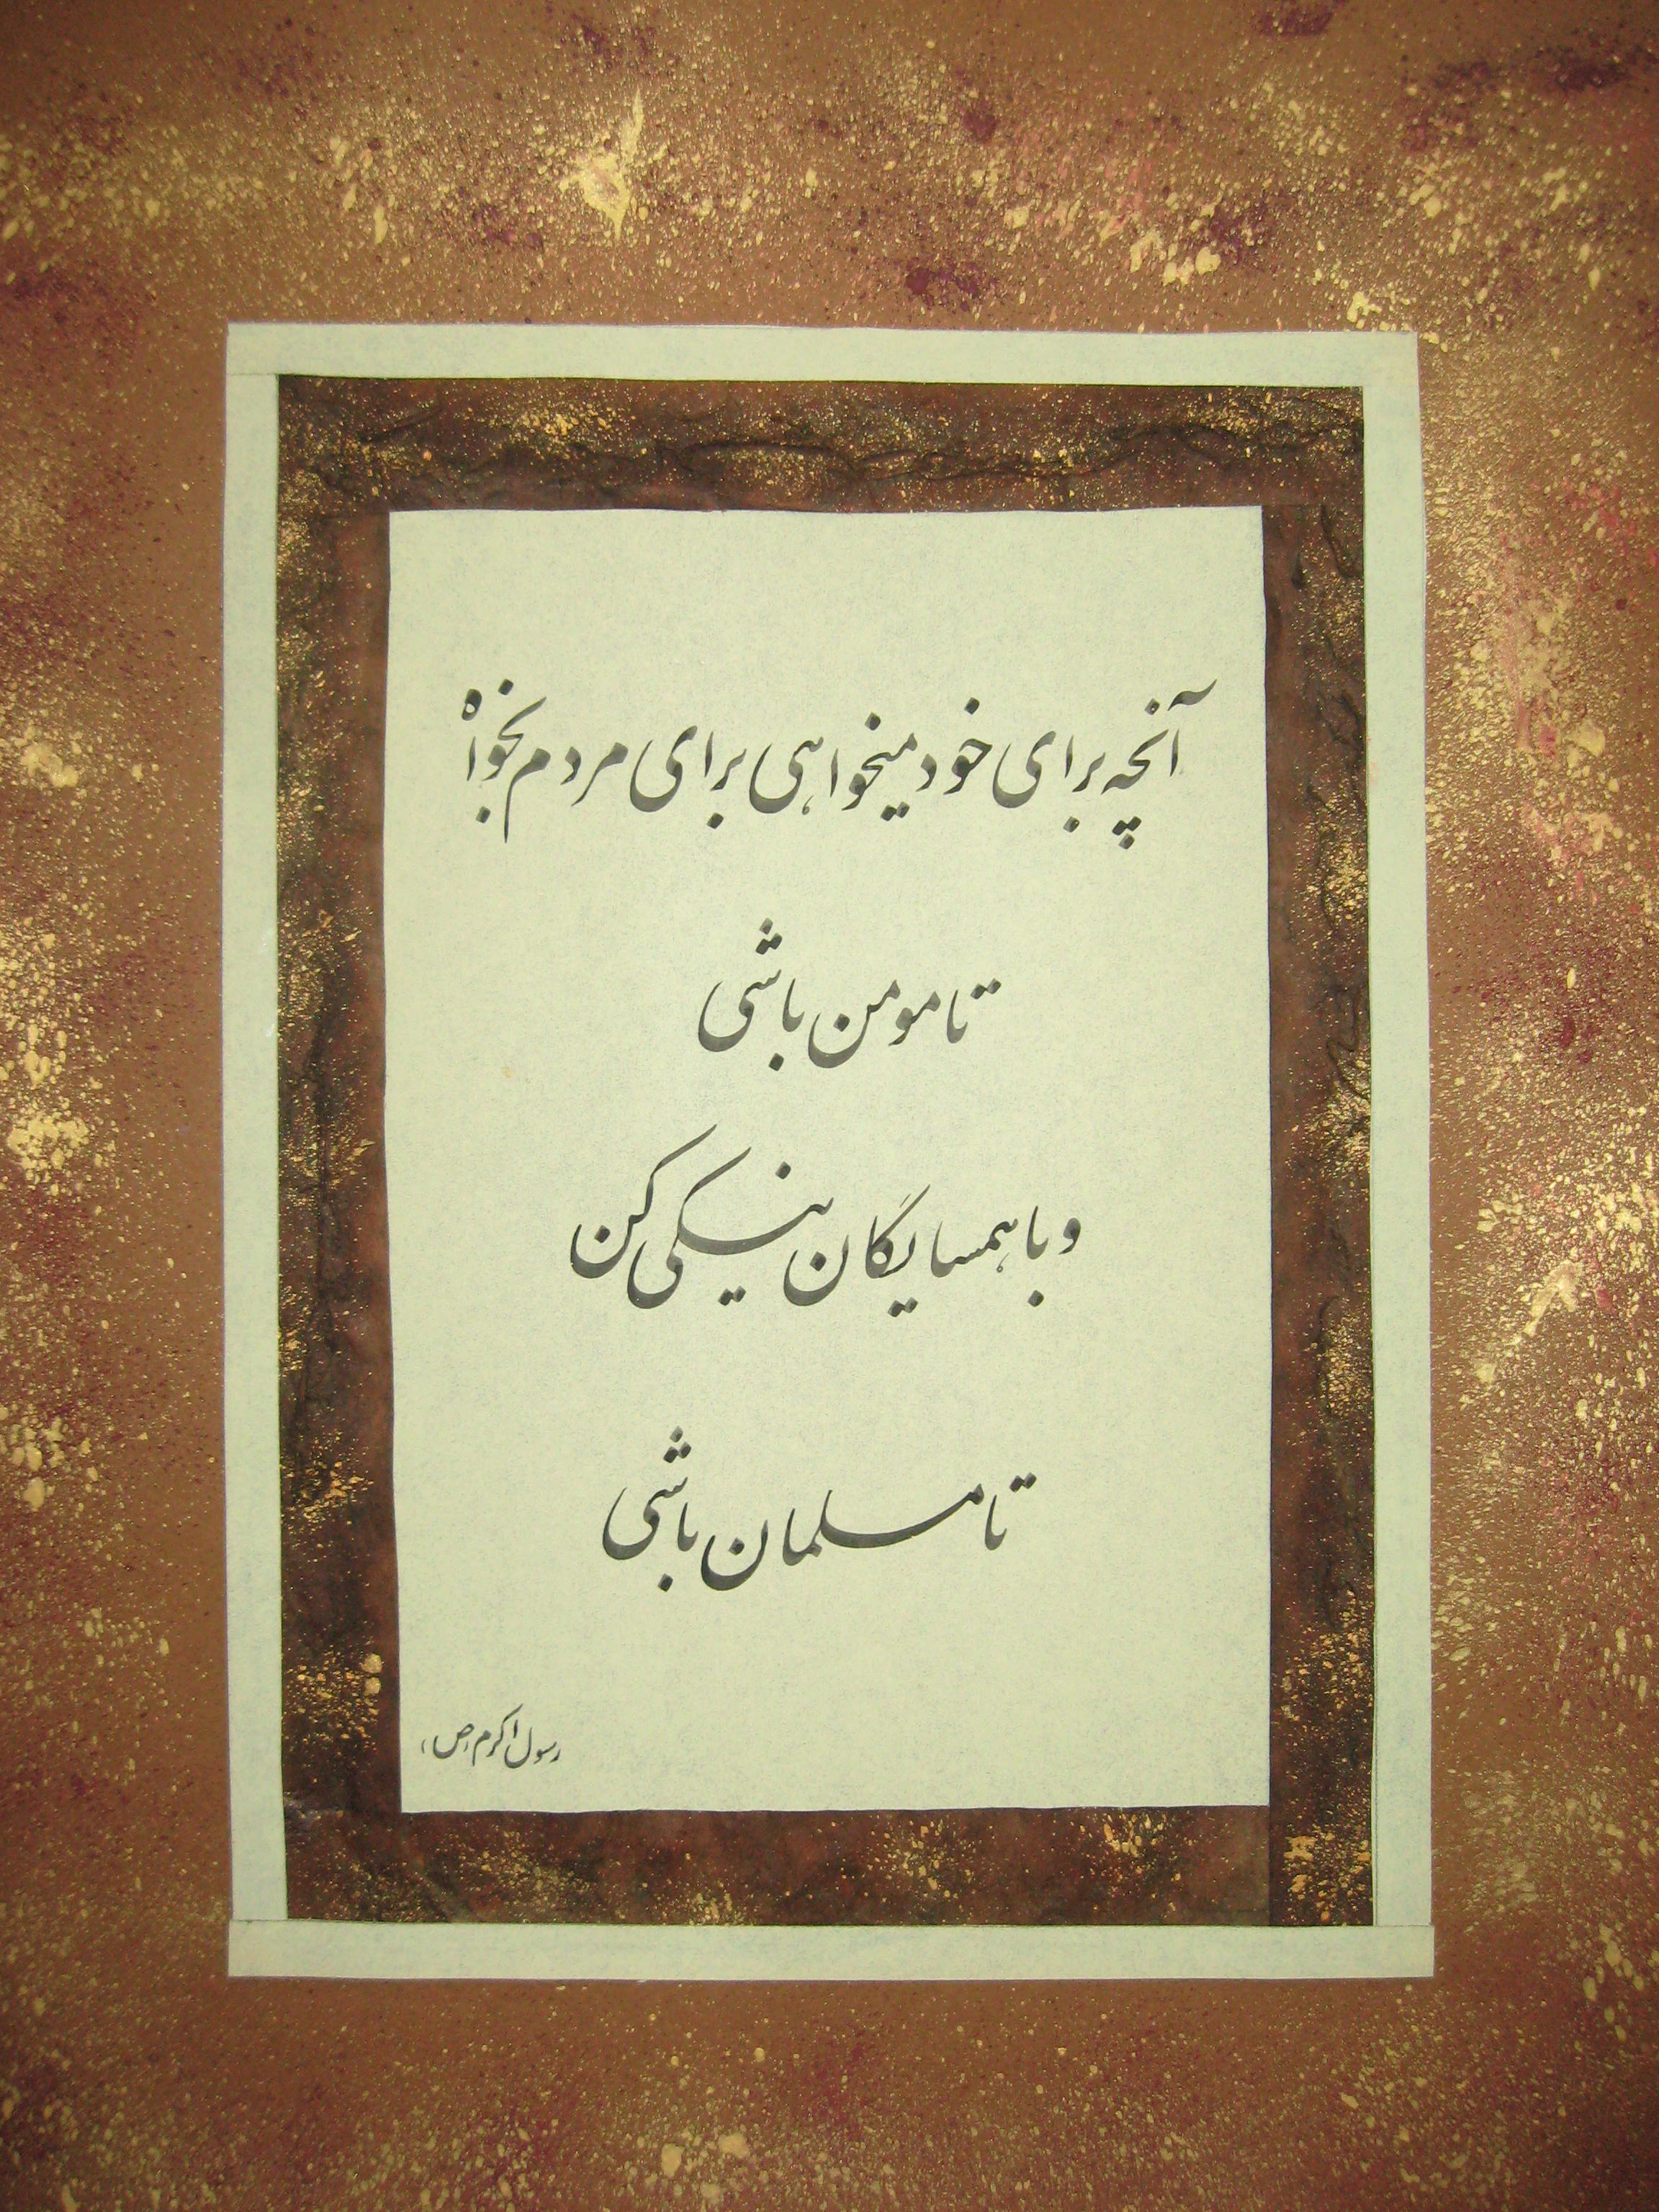 آنچه برای خود میخواهی برای مردم بخواه
تا مومن باشی
و با همسایگان نیکی کن
تا مسلمان باشی
رسول اکرم (ص)